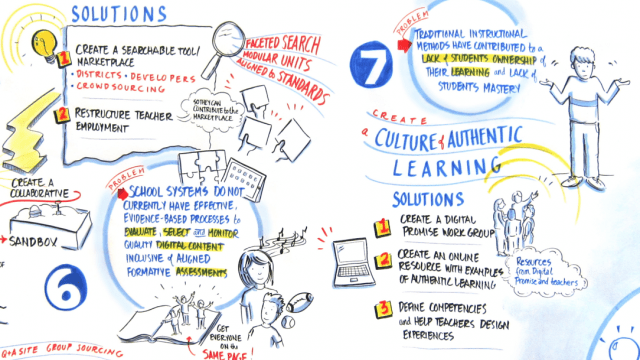 SOLUTIONS
1 CREATE A SEARCHABLE TOOL/
MARKETPLACE
• DISTRICTS • DEVELOPERS
• CROWDSOURCING
2 RESTRUCTURE TEACHER
EMPLOYMENT
FACETED SEARCH
MODULAR UNITS
ALIGNED to STANDARDS
SO THEY CAN
CONTRIBUTE to the
MARKETPLACE
CREATE A
COLLABORATIVE
SANDBOX
PROBLEM
SCHOOL SYSTEMS DO NOT
CURRENTLY HAVE EFFECTIVE,
EVIDENCE-BASED PROCESSES to
EVALUATE, SELECT and MONITOR
QUALITY DIGITAL CONTENT
INCLUSIVE of ALIGNED
FORMATIVE ASSESSMENTS
6
GET
EVERYONE
ON the
SAME PAGE!
Q+A SITE GROUP SOURCING
7
PROBLEM
TRADITIONAL INSTRUCTIONAL
METHODS HAVE CONTRIBUTED to a
LACK of STUDENTS OWNERSHIP of
THEIR LEARNING and LACK of
STUDENTS MASTERY
CREATE
a CULTURE of AUTHENTIC
LEARNING
SOLUTIONS
1 CREATE A DIGITAL
PROMISE WORK GROUP
2 CREATE AN ONLINE
RESOURCE WITH EXAMPLES
OF AUTHENTIC LEARNING
3 DEFINE COMPETENCIES
and HELP TEACHERS DESIGN
EXPERIENCES
Resources
from Digital
Promise and teachers